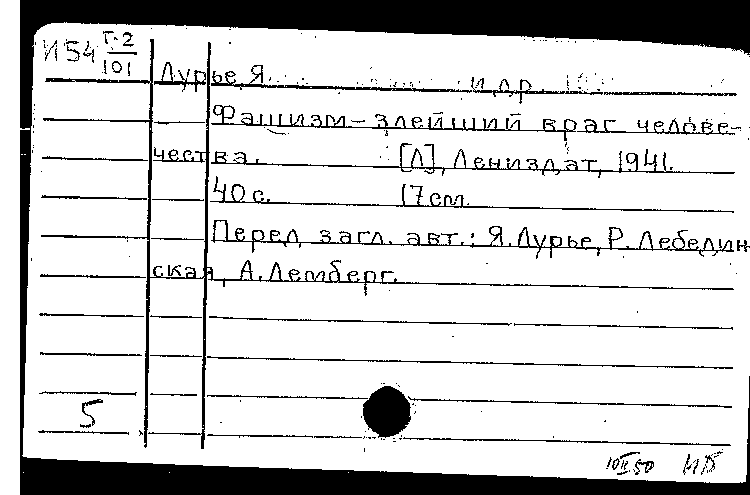 И54 Г-2
101
Лурье, Я. и др.
Фашизм – злейший враг челове-
чества. [Л], Лениздат, 1941.
40 с. 17 cm.
Перед загл. авт.: Я. Лурье, Р. Лебедин-
ская, А. Лемберг.
5
10 II 50